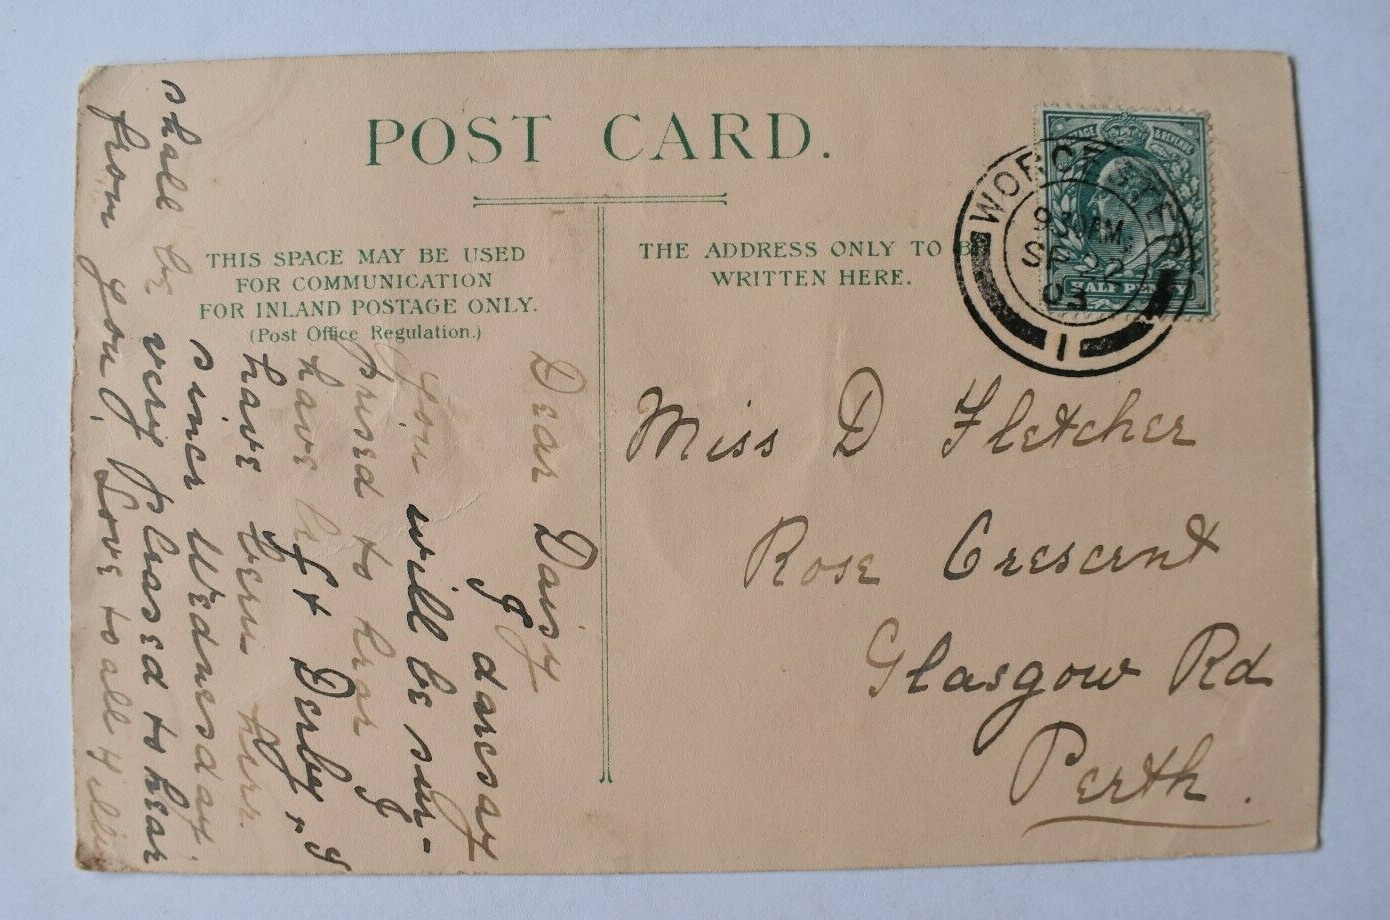 POST CARD.
THIS SPACE MAY BE USED
FOR COMMUNICATION
FOR INLAND POSTAGE ONLY.
(Post Office Regulation.)
THE ADDRESS ONLY TO BE
WRITTEN HERE.
POSTAGE & REVENUE
HALF PENNY
WORCESTER
930AM
SP 2
03
1
Miss D Fletcher
Rose Crescent
Glasgow Rd
Perth.
Dear Daisy
I daresay
you will be sur-
prised to hear I
have left Derby, I
have been here
since Wednesday.
shall be very pleased to hear
from you, Love to all